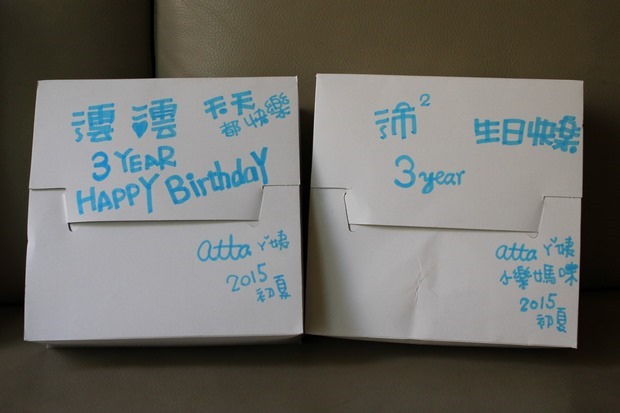 澐澐 天天
都快樂
3 YEAR
HAPPY BirthdaY
atta ㄚ姨
2015
初夏
沛² 生日快樂
3 year
atta ㄚ姨
小樂媽咪
2015
初夏